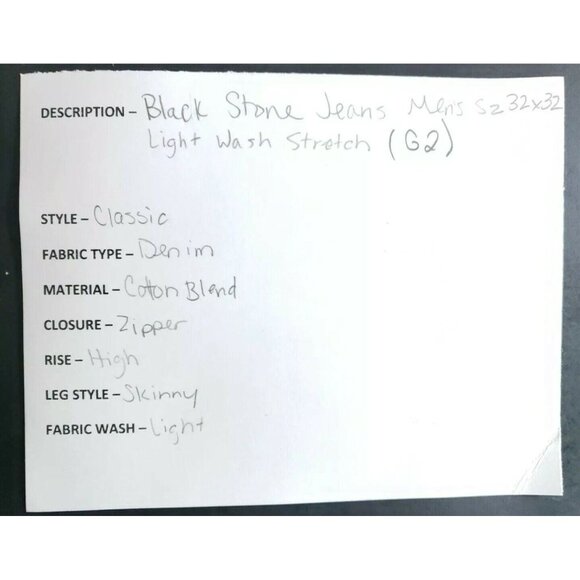 DESCRIPTION – Black Stone Jeans Men's Sz 32x32
Light Wash Stretch (G2)
STYLE – Classic
FABRIC TYPE – Denim
MATERIAL – Cotton Blend
CLOSURE – Zipper
RISE – High
LEG STYLE – Skinny
FABRIC WASH – Light